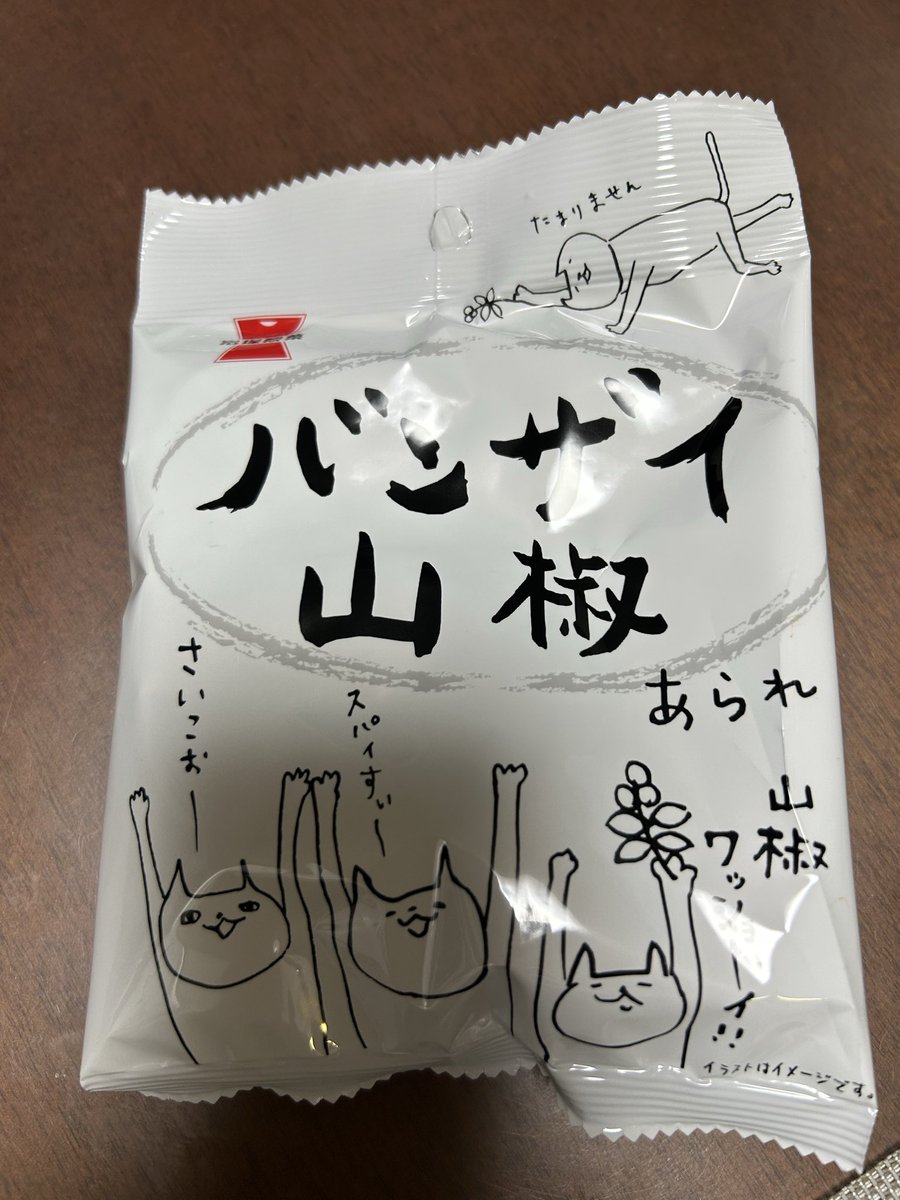 たまりません
岩塚製菓
バンザイ
山椒
あられ
さいこおー
スパイすぃー
山椒
ワッショーイ!!
イラストはイメージです。